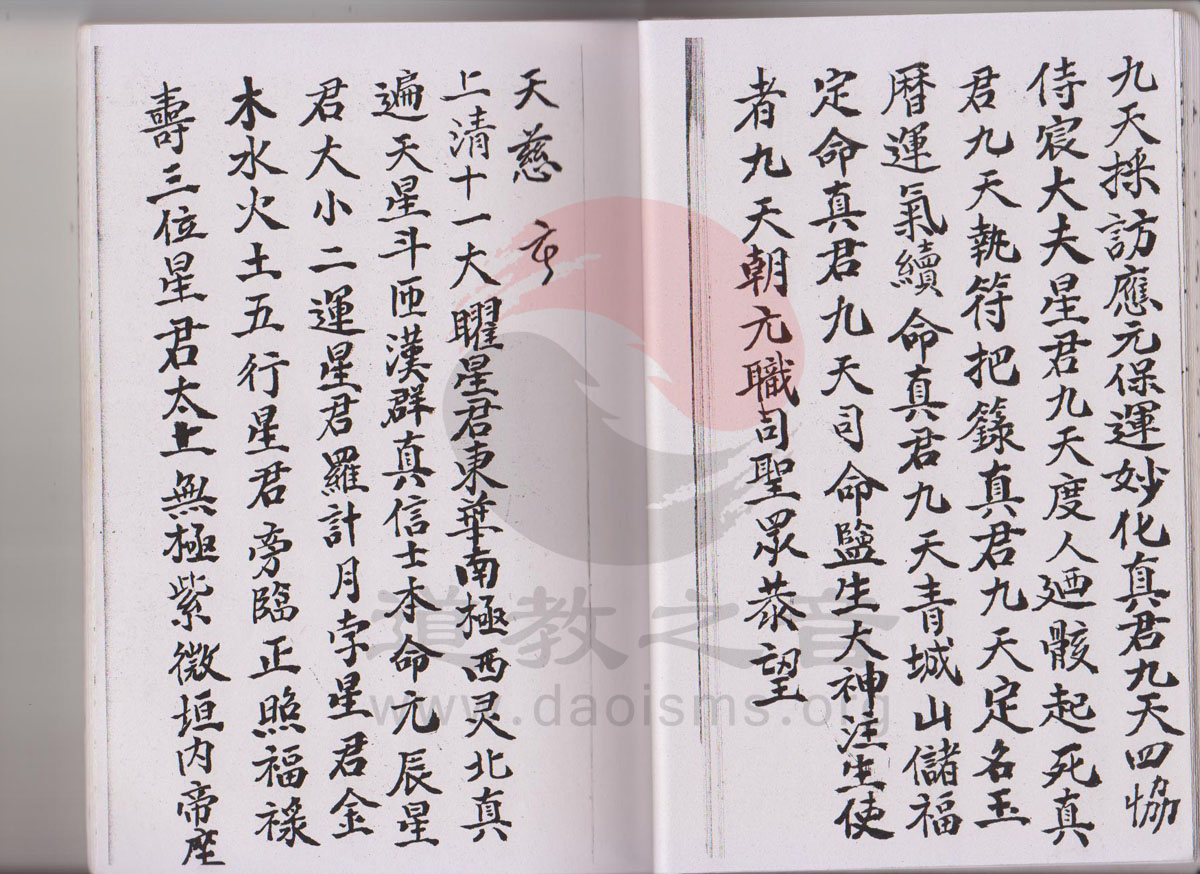 九天採訪應元保運妙化真君九天四協
侍宸大夫星君九天度人廼骸起死真
君九天執符把籙真君九天定名玉
曆運氣續命真君九天青城山儲福
定命真君九天司命鹽生大神注生使
者九天朝元職司聖眾恭望
天慈
上清十一大曜星君東華南極西灵北真
遍天星斗匝漢群真信士本命元辰星
君大小二運星君羅計月孛星君金
木水火土五行星君旁臨正照福祿
壽三位星君太上無極紫微垣内帝座
道教之音
www.daoisms.org